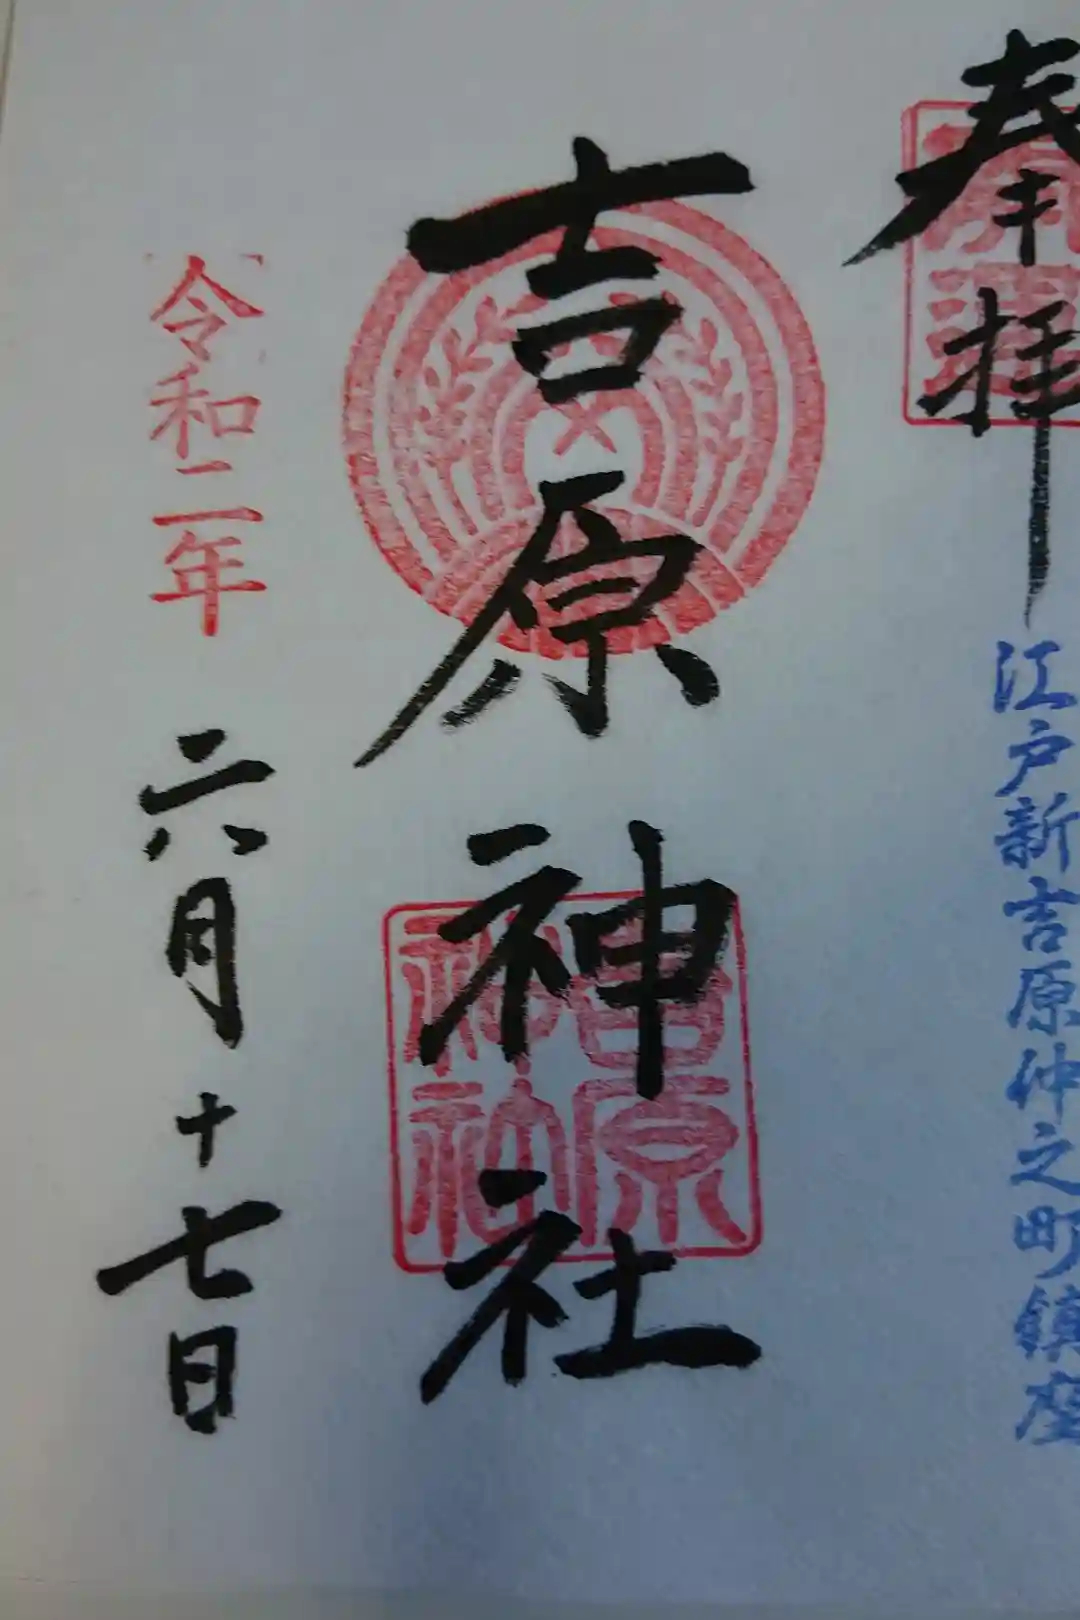 奉拝
江戸新吉原仲之町鎮座
吉原神社
吉原神社
令和二年 六月十七日